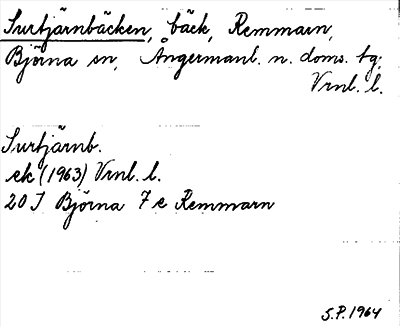 Surtjärnbäcken, bäck, Remmarn,
Björna sn, Ångermanl. n. doms. tg.
Vrnl. l.
Surtjärnb.
ek (1963) Vrnl. l.
20 I Björna 7 e Remmarn
S.P. 1964